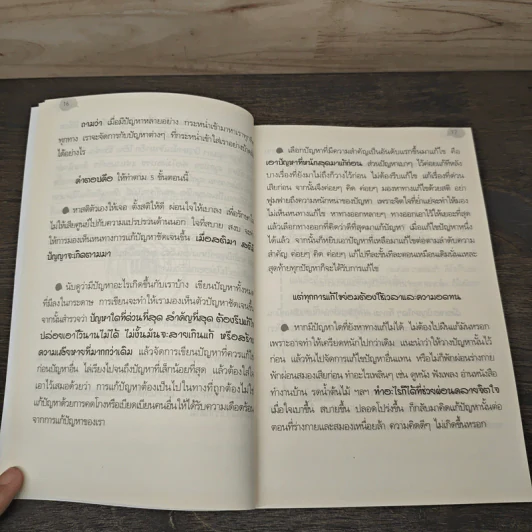 ถามว่า เมื่อมีปัญหาหลายอย่าง กระหน่ำเข้ามาหาเราทุก
ทุกทาง เราจะจัดการกับปัญหาต่างๆ ที่กระหน่ำเข้าใส่เราอย่าง
ได้อย่างไร
คำตอบคือ ให้ทำตาม 5 ขั้นตอนนี้
หาสติตัวเองให้เจอ ตั้งสติให้ดี ผ่อนใจให้เบาลง เพื่อรักษา
ไม่ให้เสียศูนย์ไปกับความแปรปรวนด้านนอก ใจที่สบาย สงบ
ให้การมองเห็นหนทางการแก้ปัญหาชัดเจนขึ้น เมื่อสติมา
ปัญญาจะเกิดตามมา
นับดูว่ามีปัญหาอะไรเกิดขึ้นกับเราบ้าง เขียนปัญหาทั้งหมด
ที่มีลงในกระดาษ การเขียนจะทำให้เรามองเห็นตัวปัญหาชัดเจน
จากนั้นสำรวจว่า ปัญหาใดที่ด่วนที่สุด สำคัญที่สุด ต้องรีบแก้ไข
ปล่อยเอาไว้นานไม่ได้ ไม่งั้นมันจะสายเกินแก้ หรือสร้าง
ความเสียหายที่มากกว่าเดิม แล้วจัดการเรียนปัญหาที่ควรแก้ไข
ก่อนปัญหาอื่น ไล่เรียงไปจนถึงปัญหาที่เล็กน้อยที่สุด แล้วต้องใส่ใจ
เอาไว้เสมอด้วยว่า การแก้ปัญหาต้องเป็นไปในทางที่ถูกต้อง ไม่ใช่
แก้ปัญหาด้วยการคดโกงหรือเบียดเบียนคนอื่นให้ได้รับความเดือดร้อน
จากการแก้ปัญหาของเรา
เลือกปัญหาที่มีความสำคัญเป็นอันดับแรกขึ้นมาแก้ไข คือ
เอาปัญหาที่หนักสุดมาแก้ก่อน ส่วนปัญหาเบาๆ ไว้ค่อยแก้ทีหลัง
บางเรื่องที่ยังมาไม่ถึงก็วางไว้ก่อน ไม่ต้องรีบแก้ไข แก้เรื่องที่ด่วน
เสียก่อน จากนั้นจึงค่อยๆ คิด ค่อยๆ มองหาทางแก้ไขด้วยสติ อย่า
ฟูมฟายถึงความหนักหนาของปัญหา เพราะจิตใจที่ย่ำแย่จะทำให้มอง
ไม่เห็นหนทางแก้ไข หาทางออกหลายๆ ทางออกเอาไว้ให้เยอะที่สุด
แล้วเลือกทางออกที่คิดว่าดีที่สุดมาแก้ปัญหา เมื่อแก้ไขปัญหาหนึ่ง
ได้แล้ว จากนั้นก็หยิบเอาปัญหาที่เหลือมาแก้ไขต่อตามลำดับความ
สำคัญ ค่อยๆ คิด ค่อยๆ แก้ไปทีละขั้นทีละตอนเหมือนเดิมนั่นแหละ
สุดท้ายทุกปัญหาก็จะได้รับการแก้ไข
แต่ทุกการแก้ไขย่อมต้องใช้เวลาและความอดทน
หากมีปัญหาใดที่ยังหาทางแก้ไม่ได้ ไม่ต้องไปฝืนแก้มันหรอก
เพราะอาจทำให้เครียดหนักไปกว่าเดิม แนะนำว่าให้วางปัญหานั้นไว้
ก่อน แล้วหันไปจัดการแก้ไขปัญหาอื่นแทน หรือไม่ก็พักผ่อนร่างกาย
พักผ่อนสมองเสียก่อน ทำอะไรเพลินๆ เช่น ดูหนัง ฟังเพลง อ่านหนังสือ
ทำงานบ้าน รดน้ำต้นไม้ ฯลฯ ทำอะไรก็ได้ที่ช่วยผ่อนคลายจิตใจ
เมื่อใจเบาขึ้น สบายขึ้น ปลอดโปร่งขึ้น ก็กลับมาคิดแก้ปัญหานั้นต่อ
ตอนที่ร่างกายและสมองเหนื่อยล้า ความคิดดีๆ ไม่เกิดขึ้นหรอก